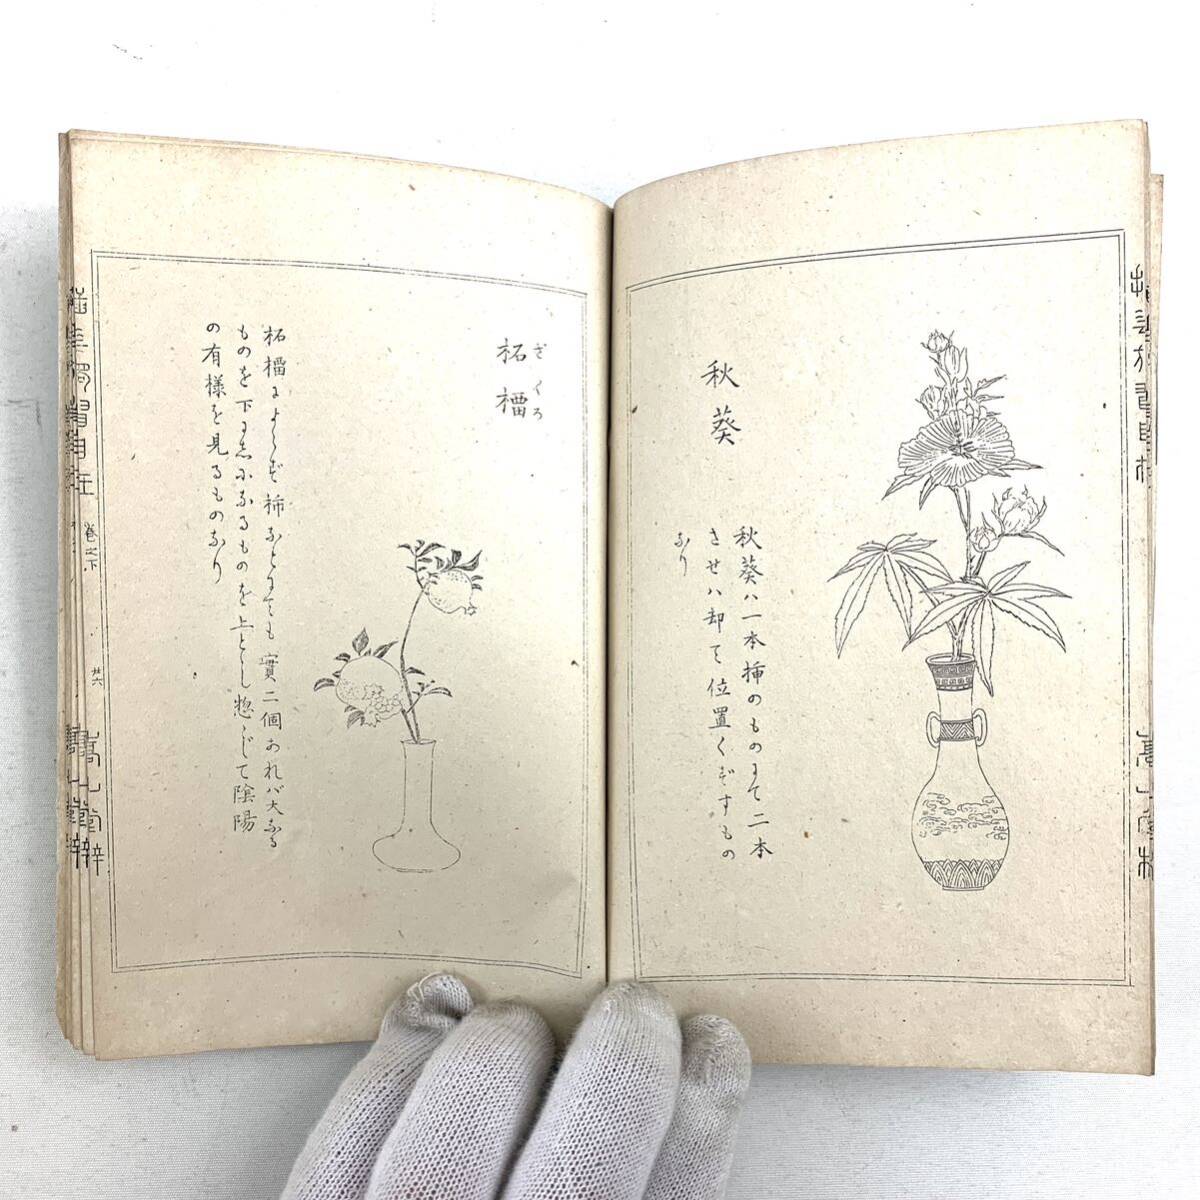 秋葵
秋葵ハ一本挿のものにて二本
させハ却て位置くずすもの
なり
柘榴
ざくろ
柘榴によらず柿などにても實二個あれバ大なる
ものを下に小なるものを上とし惣じて陰陽
の有様を見るものなり
巻之下
廿六